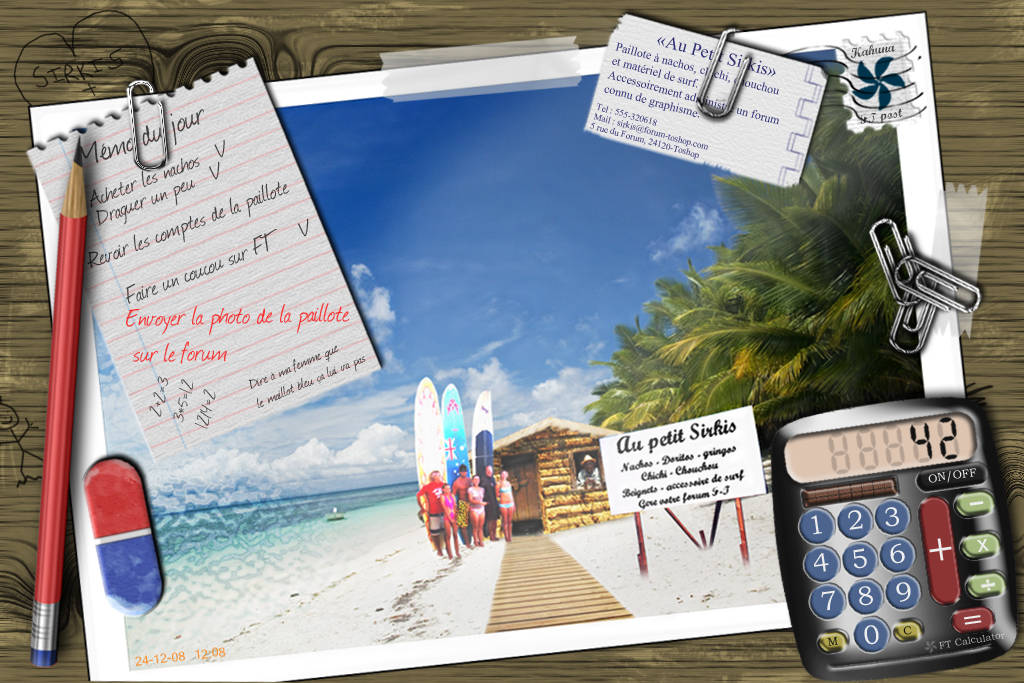 SIRKIS
+
Mémo du jour
Acheter les nachos V
Draguer un peu V
Revoir les comptes de la paillote
Faire un coucou sur FT V
Envoyer la photo de la paillote
sur le forum
2+2=3
3*5=12
12/4=2
Dire à ma femme que
le maillot bleu ça lui va pas
«Au Petit Sirkis»
Paillote à nachos, chichi, chouchou
et matériel de surf.
Accessoirement administre un forum
connu de graphisme.
Tel : 555-320618
Mail : sirkis@forum-toshop.com
5 rue du Forum, 24120-Toshop
Kahuna
F-T post
Au petit Sirkis
Nachos - Doritos - gringos
Chichi - Chouchou
Beignets - accessoire de surf
Gère votre forum F-T
42
ON/OFF
1 2 3 −
4 5 6 + x
7 8 9 ÷
M 0 C =
FT Calculator
24-12-08 12:08